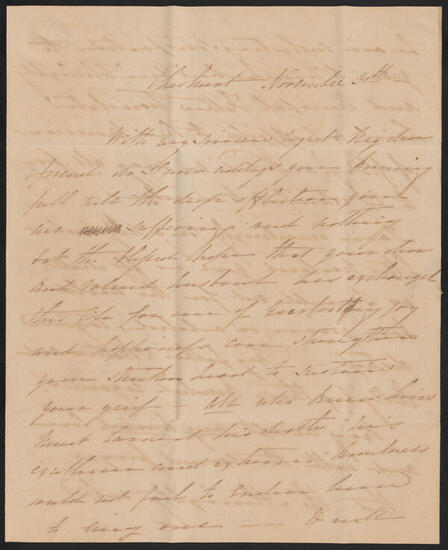 Cheshunt November 30th
With very sincere regret my dear
friend do I now address you knowing
full well the deep affliction you
are suffering and nothing
but the blessed hope that your dear
and valued husband has exchanged
this life for one of Everlasting joy
and happiness can strengthen
your stricken heart to sustain
your grief – all who knew him
must lament his death, his
excellence and extreme kindness
could not fail to endear him
to every one — I will